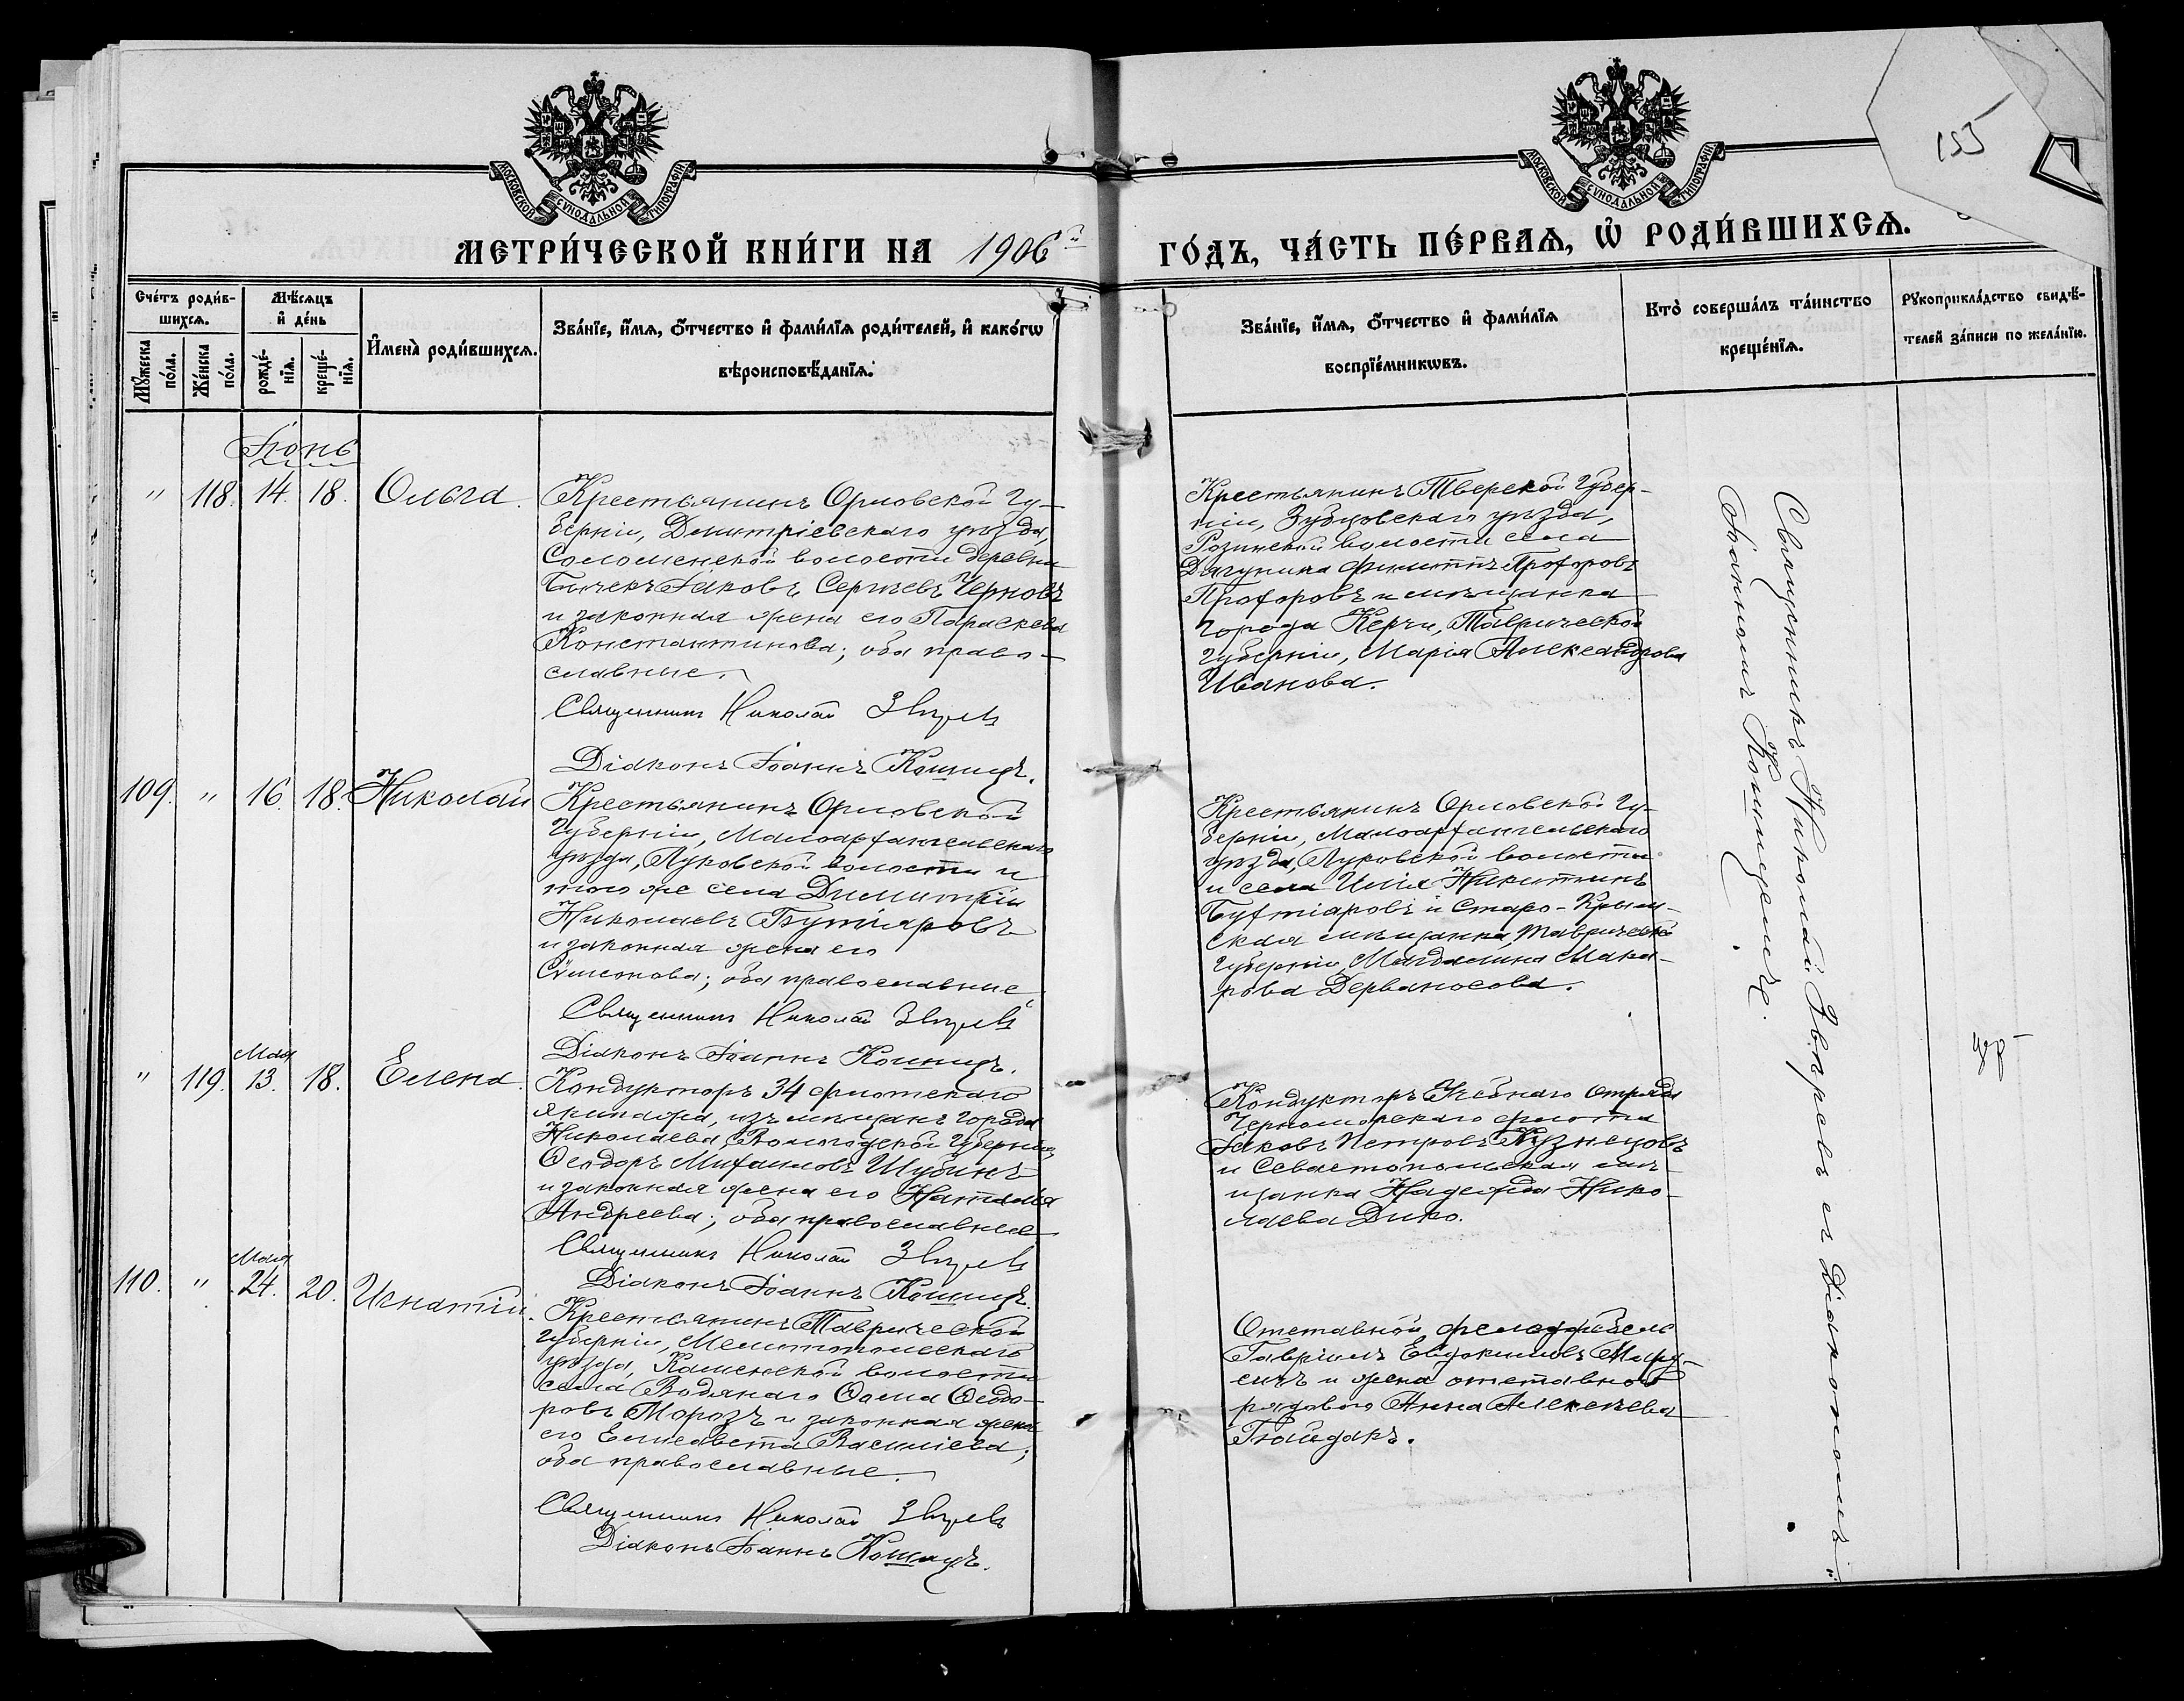 155
МОСКОВСКОЙ СУНОДАЛЬНОЙ ТИПОГРАФІИ
МОСКОВСКОЙ СУНОДАЛЬНОЙ ТИПОГРАФІИ
МЕТРИ́ЧЕСКОЙ КНИ́ГИ НА 1906й
ГО́ДЪ, ЧА́СТЬ ПЕ́РВАѦ, Ѡ҆ РОДИ́ВШИХСѦ.
Сче́тъ роди́в-
шихсѧ.
Мꙋ́жеска по́ла.
Же́нска по́ла.
Мѣ́сѧцъ
и҆ де́нь
рожде́-
нїѧ.
креще́-
нїѧ.
И҆мена̀ роди́вшихсѧ.
Зва́нїе, и҆́мѧ, ѻ҆́тчество и҆ фами́лїѧ роди́телей, и҆ како́гѡ
вѣроисповѣ́данїѧ.
Зва́нїе, и҆́мѧ, ѻ҆́тчество и҆ фами́лїѧ
воспрїе́мникѡвъ.
Кто̀ соверша́лъ та́инство
креще́нїѧ.
Рꙋкоприкла́дство свидѣ́-
телей за́писи по жела́нїю.
Іюнь
" 118. 14. 18. Ольга.
Крестьянинъ Орловской Гу-
берніи, Димитріевскаго уѣзда,
Соломенской волости деревни
Іаковъ Сергѣевъ Черновъ
и законная жена его Параскева
Константинова; оба право-
славные.
Священникъ Николай Звѣревъ
Діаконъ Іоаннъ Кошицъ.
Крестьянинъ Тверской Губер-
ніи, Зубцовскаго уѣзда,
волости села
Дягунина Филиппъ Прохоровъ
Прохоровъ и мѣщанка
города Керчи, Таврической
Губерніи, Марія Александрова
Иванова.
109. " 16. 18. Николай
Крестьянинъ Орловской
Губерніи, Малоархангельскаго
уѣзда, Луковской волости и
того же села Димитрій
Николаевъ Бухтіяровъ
и законная жена его
Сѵмеонова; оба православные
Священникъ Николай Звѣревъ
Діаконъ Іоаннъ Кошицъ.
Крестьянинъ Орловской Гу-
берніи, Малоархангельскаго
уѣзда, Луковской волости
и села Илія Никитинъ
Бухтіаровъ и Старо-Крым-
ская мѣщанка, Таврической
Губерніи, Магдалина Мака-
рова Дерваносова.
" 119. Мая 13. 18. Елена.
Кондукторъ 34 флотскаго
экипажа, изъ мѣщанъ города
Николаева, Вологодской Губерніи,
Ѳеодоръ Михаиловъ Шубинъ
и законная жена его Наталія
Андреева; оба православные
Священникъ Николай Звѣревъ
Діаконъ Іоаннъ Кошицъ.
Кондукторъ Учебнаго Отряда
Черноморскаго флота
Іаковъ Петровъ Кузнецовъ
и Севастопольская мѣ-
щанка Надежда Нико-
лаева Дико.
110. " Мая 24. 20. Игнатій.
Крестьянинъ Таврической
Губерніи, Мелитопольскаго
уѣзда, Каменской волости
села Водянаго Ѳома Ѳеодо-
ровъ Морозъ и законная жена
его Елисавета Василіева;
оба православные.
Священникъ Николай Звѣревъ
Діаконъ Іоаннъ Кошицъ.
Отставной фельдфебель
Гавріилъ Евдокимовъ
и жена отставного
рядового Анна Алексѣева
Гнайдакъ.
Священникъ Николай Звѣревъ съ Діакономъ
Іоанномъ Кошицемъ.